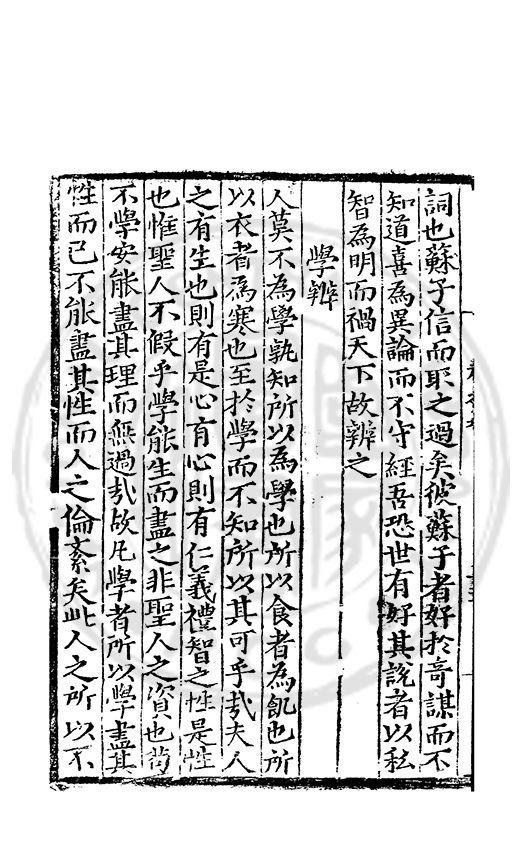 詞也蘇子信而取之過矣彼蘇子者好於奇謀而不
知道喜為異論而不守經吾恐世有好其說者以私
智為明而禍天下故辨之
學辨
人莫不為學孰知所以為學也所以食者為飢也所
以衣者為寒也至於學而不知所以其可乎哉夫人
之有生也則有是心有心則有仁義禮智之性是性
也惟聖人不假乎學能生而盡之非聖人之資也苟
不學安能盡其理而無過哉故凡學者所以學盡其
性而已不能盡其性而人之倫紊矣此人之所以不